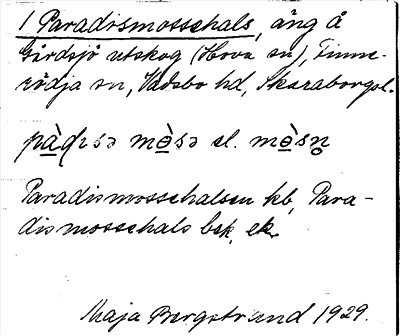 1 Paradismossehals, äng å
Gårdsjö utskog (Hova sn), Finne-
rödja sn, Vadsbo hd, Skaraborgs l.
pàḍɩsə mòsə el. mòsn̥
Paradismossehalsen kb, Para-
dismossehals bsk, ek.
Maja Bergstrand 1929.